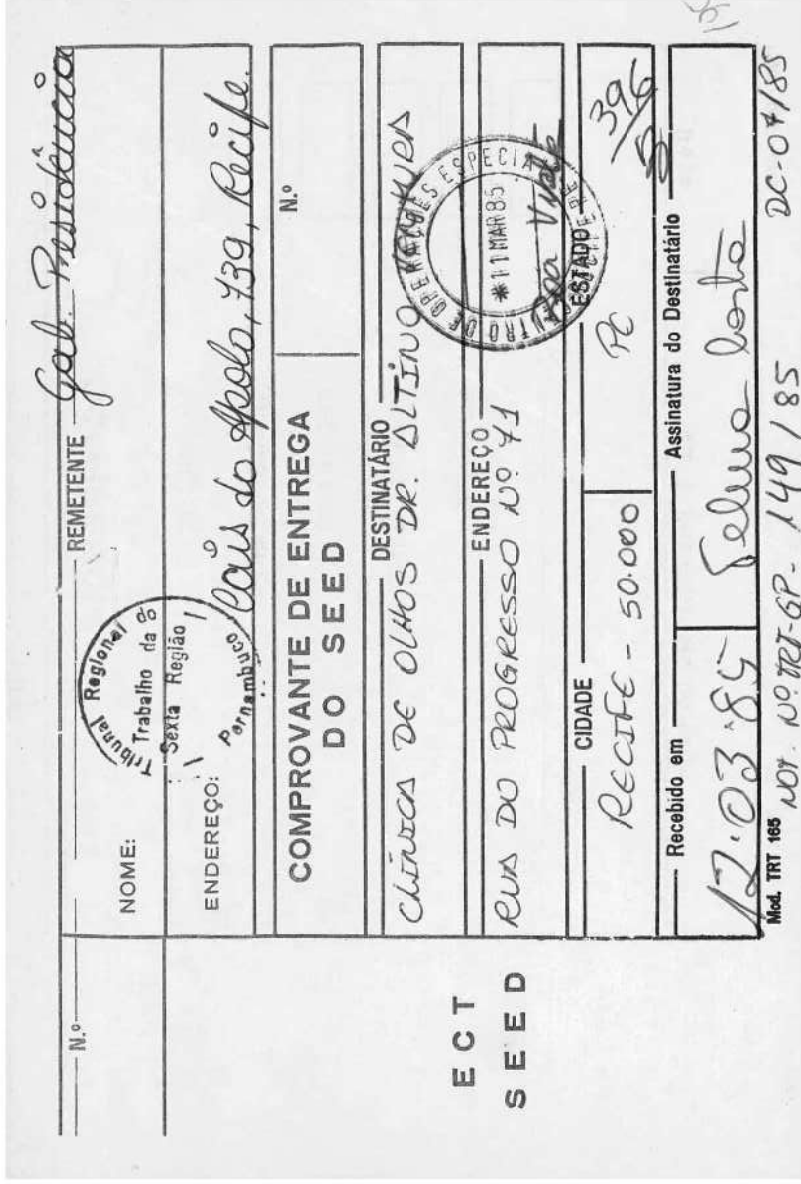 N.º
REMETENTE
Gab. Presidência
NOME:
Tribunal Regional do
Trabalho da
Sexta Região
Pernambuco
ENDEREÇO:
Cais do Apolo, 739, Recife.
COMPROVANTE DE ENTREGA
DO SEED
N.º
ECT
SEED
DESTINATÁRIO
CLÍNICA DE OLHOS DR. ALTINO
ENDEREÇO
RUA DO PROGRESSO Nº 71
Boa Vista
CENTRO DE OPERAÇÕES ESPECIAIS
*11 MAR 85
RECIFE PE
CIDADE
ESTADO
RECIFE - 50.000
PE
396
Recebido em
Assinatura do Destinatário
12.03.85
Telma Costa
Mod. TRT 165
NOT. Nº TRT-GP- 149/85
DC-04/85